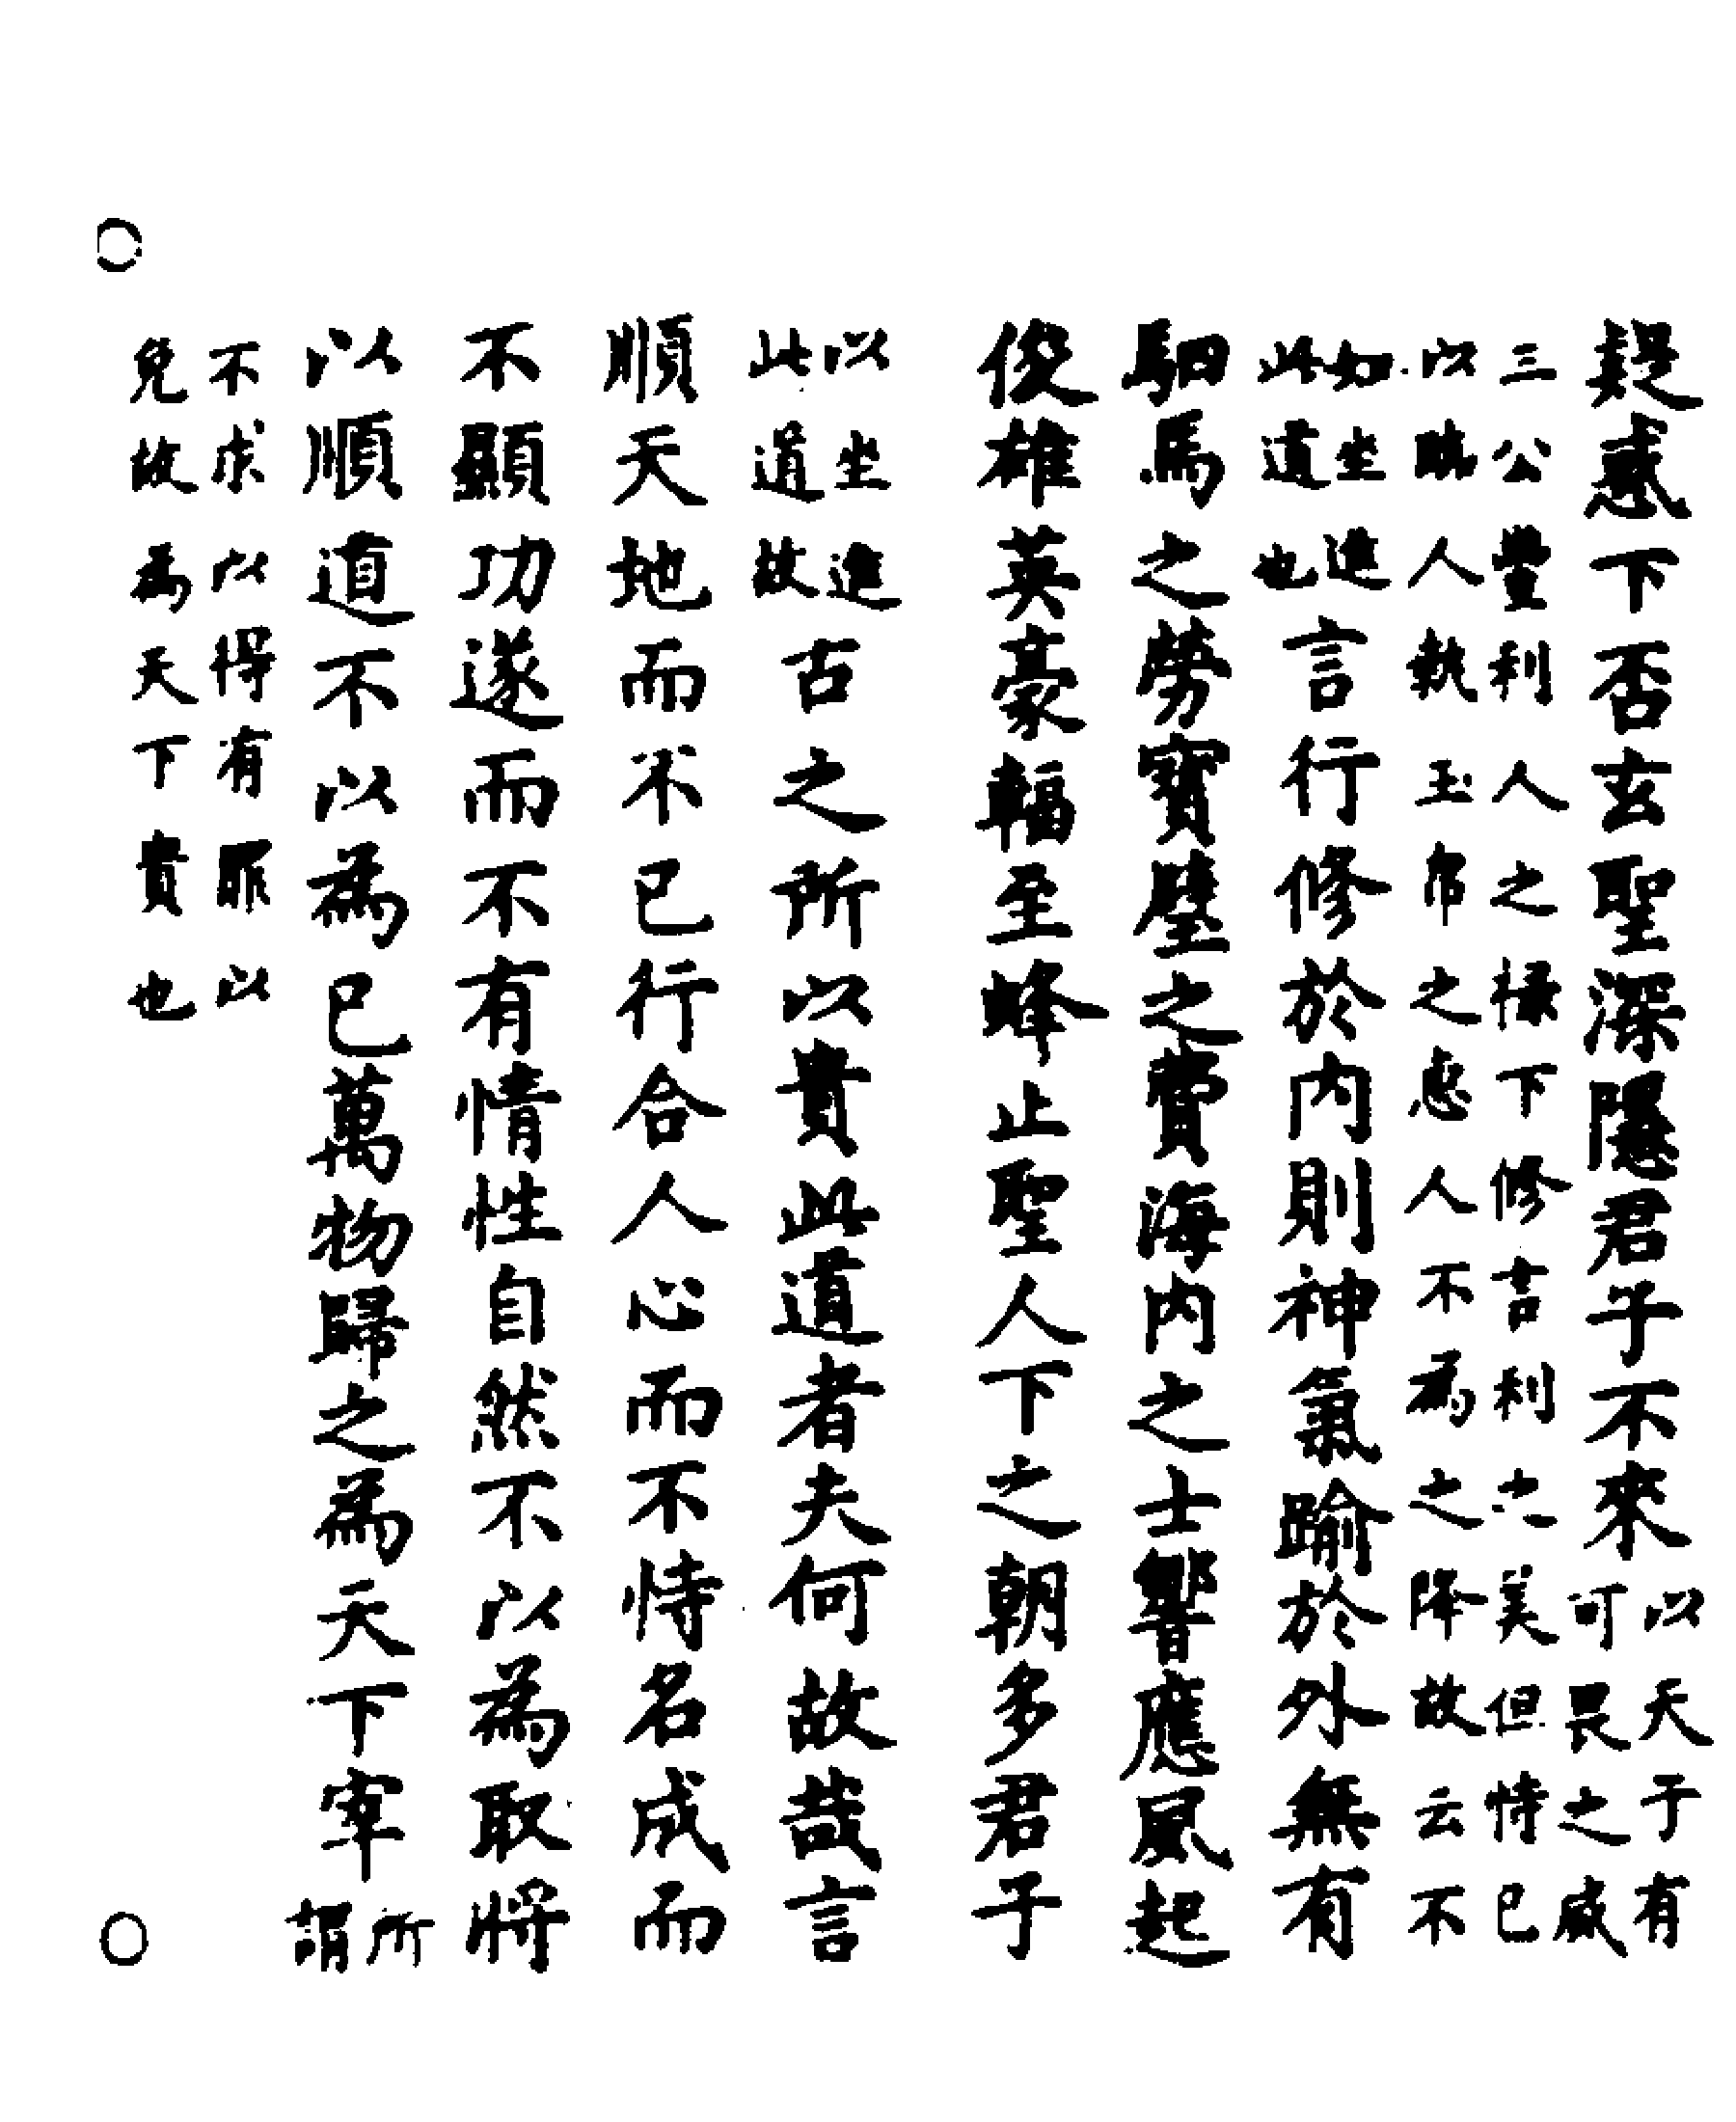 疑惑下否玄聖深隱君子不來以天子有
可畏之威
三公豐利人之祿下修言利之美但恃已
以臨人執玉帛之惠人不為之降故云不
如坐進
此道也言行修於內則神氣踰於外無有
駟馬之勞寶璧之費海內之士響應風起
俊雄英豪輻至蜂止聖人下之朝多君子
以坐進
此道故古之所以貴此道者夫何故哉言
順天地而不已行合人心而不恃名成而
不顯功遂而不有情性自然不以為取將
以順道不以為已萬物歸之為天下宰所
謂
不求以得有罪以
免故為天下貴也